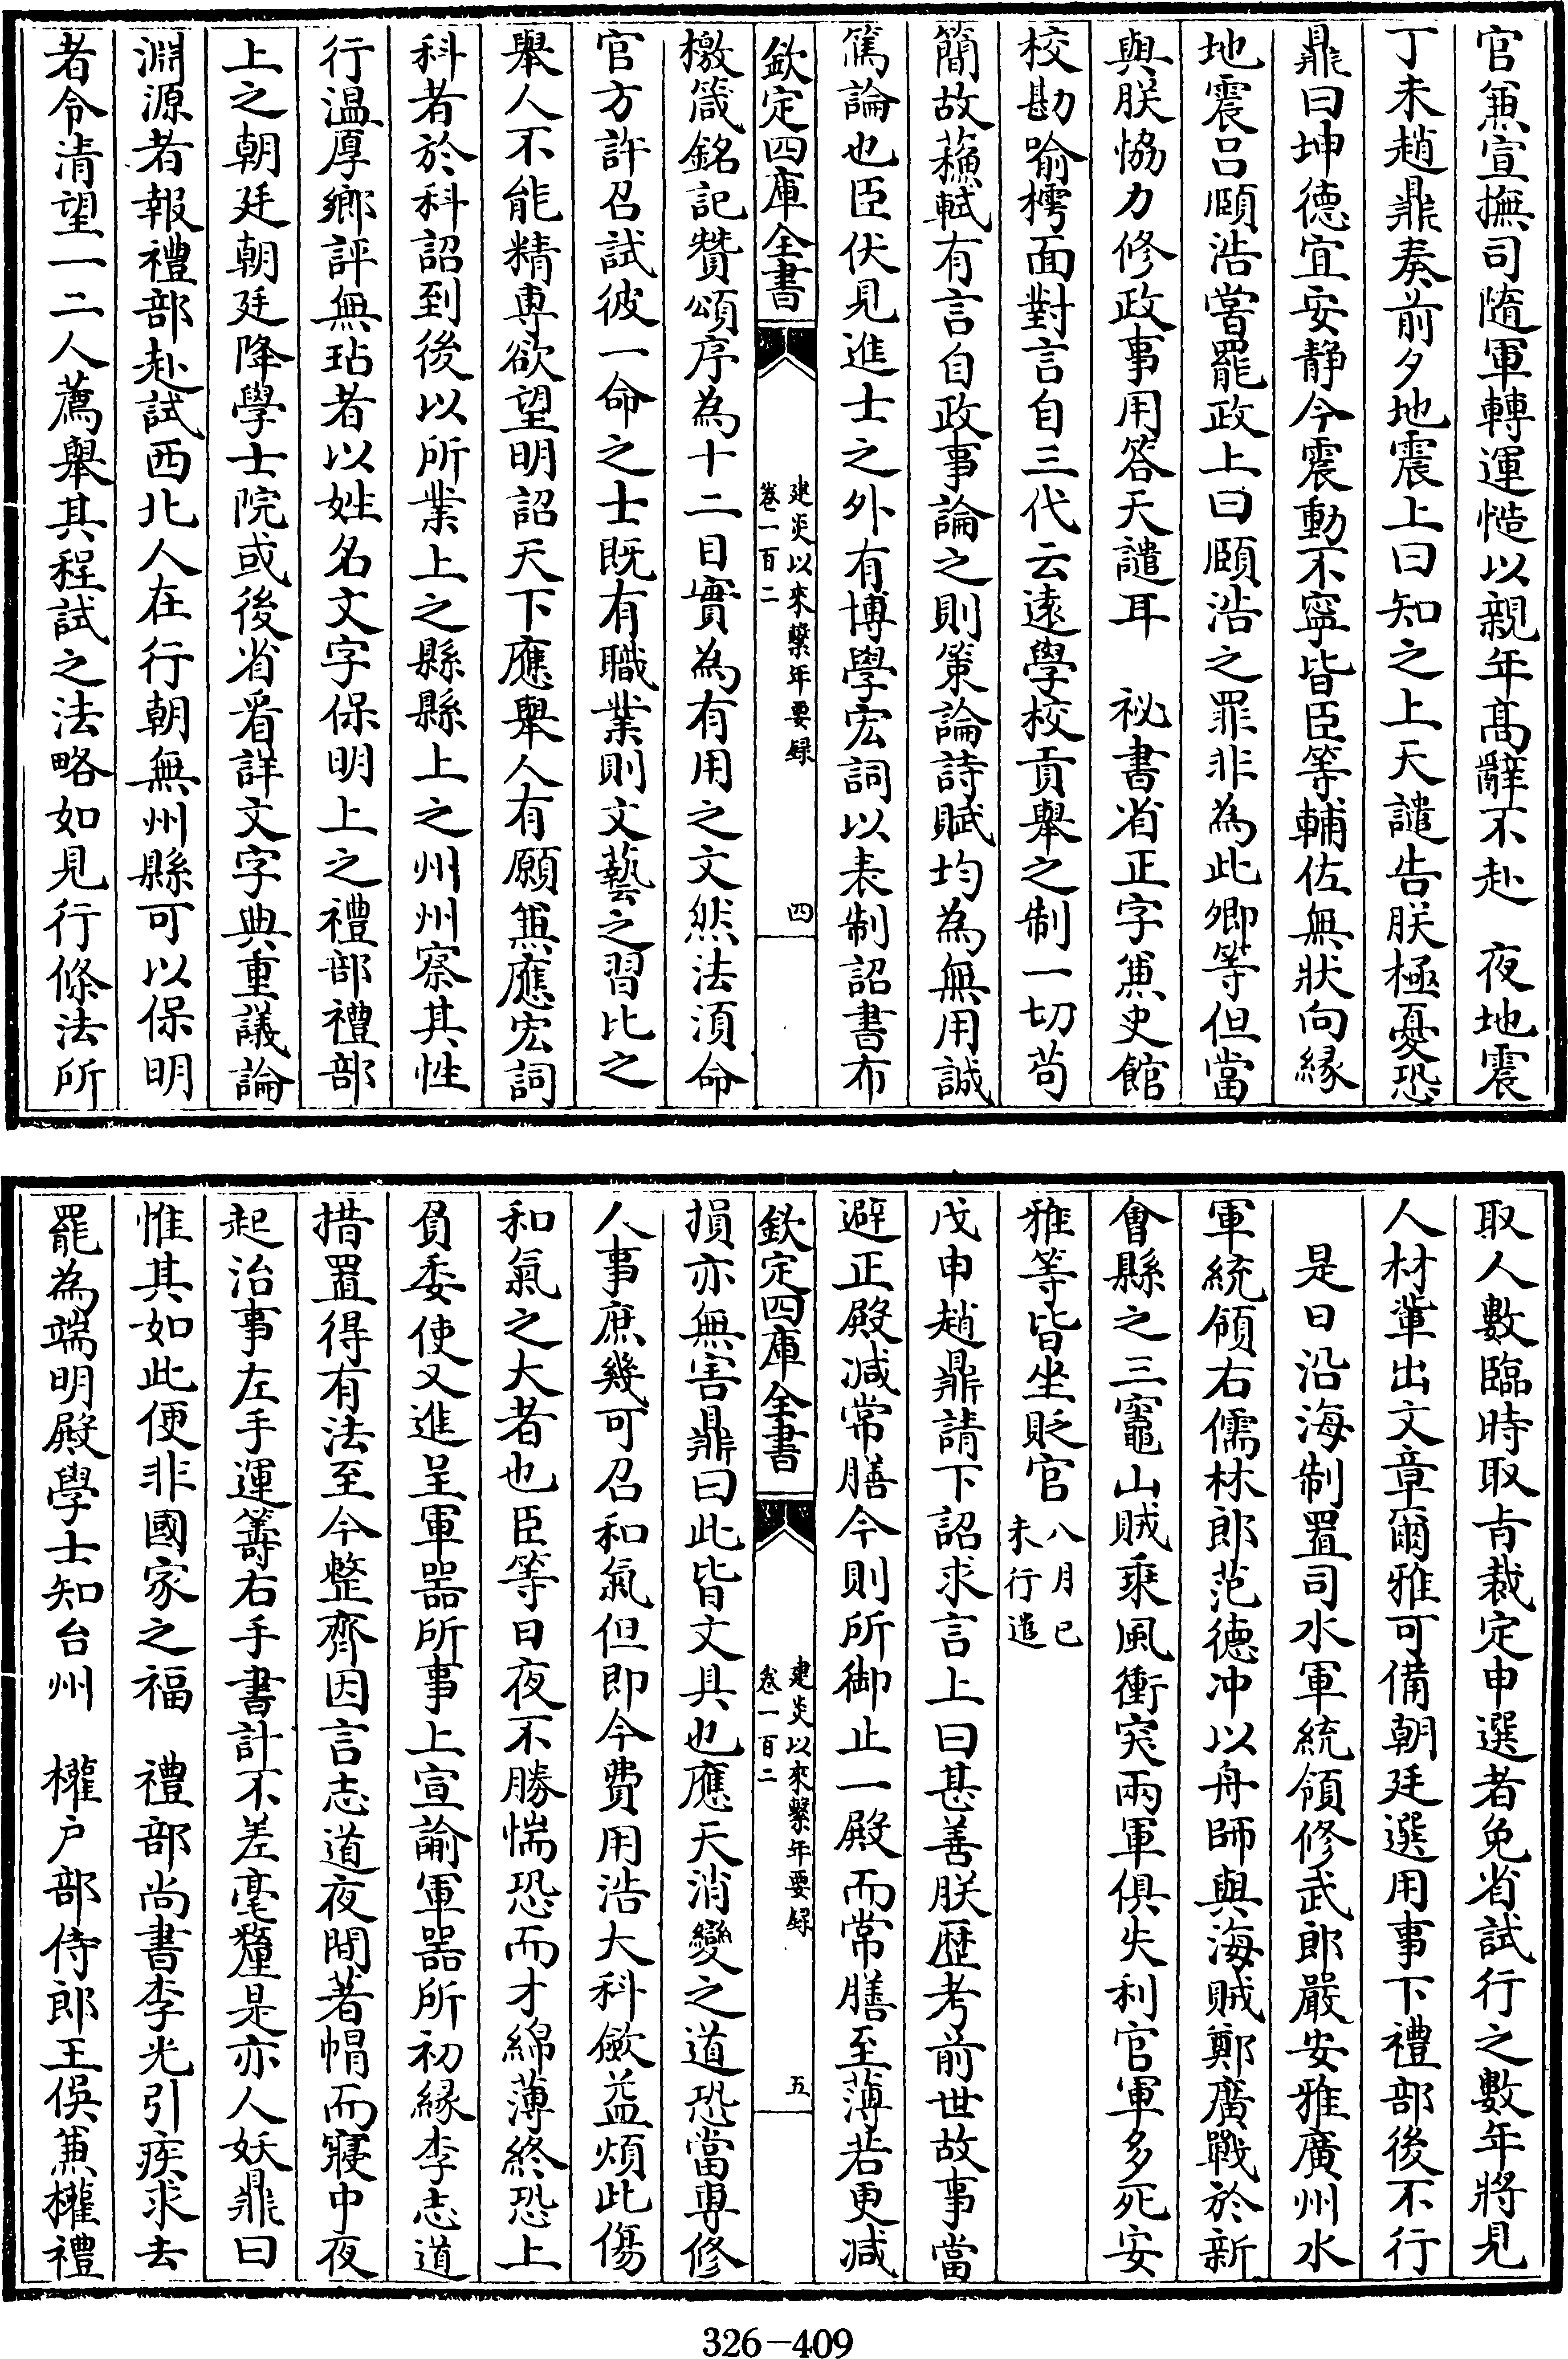 官兼宣撫司隨軍轉運悎以親年髙辭不赴　夜地震
丁未趙鼎奏前夕地震上曰知之上天譴告朕極憂恐
鼎曰坤德宜安静今震動不寧皆臣等輔佐無狀向縁
地震吕頤浩嘗罷政上曰頤浩之罪非為此卿等但當
與朕恊力修政事用答天譴耳　祕書省正字兼史館
校勘喻樗面對言自三代云逺學校貢舉之制一切苟
簡故蘓軾有言自政事論之則策論詩賦均為無用誠
篤論也臣伏見進士之外有博學宏詞以表制詔書布
欽定四庫全書
建炎以來繫年要録
卷一百二
四
檄箴銘記贊頌序為十二目實為有用之文然法須命
官方許召試彼一命之士既有職業則文藝之習比之
舉人不能精專欲望明詔天下應舉人有願兼應宏詞
科者於科詔到後以所業上之縣縣上之州州察其性
行温厚鄉評無玷者以姓名文字保明上之禮部禮部
上之朝廷朝廷降學士院或後省看詳文字典重議論
淵源者報禮部赴試西北人在行朝無州縣可以保明
者令清望一二人薦舉其程試之法略如見行條法所
取人數臨時取旨裁定申選者免省試行之數年將見
人材輩出文章爾雅可備朝廷選用事下禮部後不行
是日沿海制置司水軍統領修武郎嚴安雅廣州水
軍統領右儒林郎范德冲以舟師與海賊鄭廣戰於新
會縣之三竈山賊乘風衝突兩軍俱失利官軍多死安
雅等皆坐貶官八月已
未行遣
戊申趙鼎請下詔求言上曰甚善朕歴考前世故事當
避正殿减常膳今則所御止一殿而常膳至薄若更减
欽定四庫全書
建炎以來繫年要録
卷一百二
五
損亦無害鼎曰此皆文具也應天消變之道恐當專修
人事庶幾可召和氣但即今費用浩大科歛益煩此傷
和氣之大者也臣等日夜不勝惴恐而才綿薄終恐上
負委使又進呈軍器所事上宣諭軍器所初縁李志道
措置得有法至今整齊因言志道夜間著帽而寢中夜
起治事左手運籌右手書計不差毫釐是亦人妖鼎曰
惟其如此便非國家之福　禮部尚書李光引疾求去
罷為端明殿學士知台州　權户部侍郎王俁兼權禮
326-409